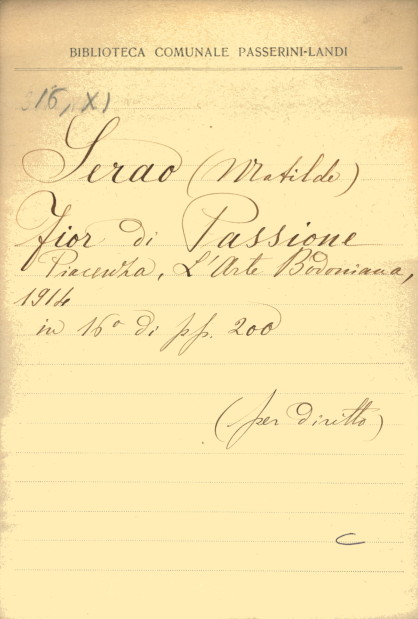 BIBLIOTECA COMUNALE PASSERINI-LANDI
16, XI
Serao (Matilde)
Fior di Passione
Piacenza, L'Arte Bodoniana,
1914
in 16° di pp. 200
(per diritto)
C